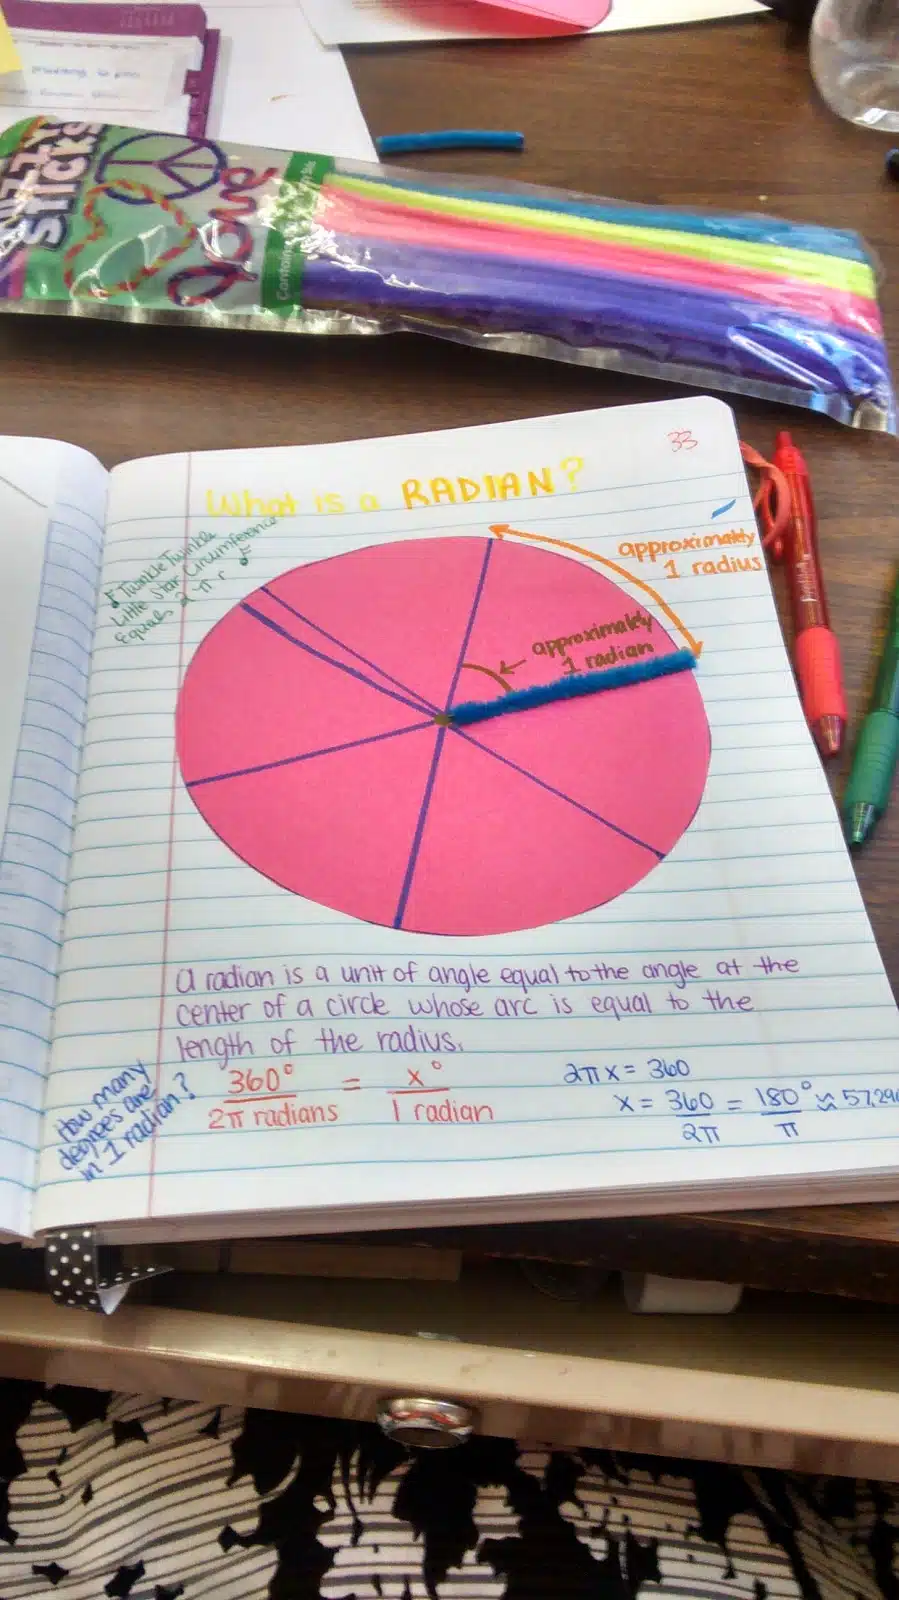 Sticks
Love
33
What is a RADIAN?
Twinkle Twinkle
Little Star Circumference
Equals 2 π r
approximately
1 radius
approximately
1 radian
A radian is a unit of angle equal to the angle at the
center of a circle whose arc is equal to the
length of the radius.
How many
degrees are
in 1 radian?
360° = x°
2π radians 1 radian
2πx = 360
x = 360 = 180° ≈ 57.296
2π π